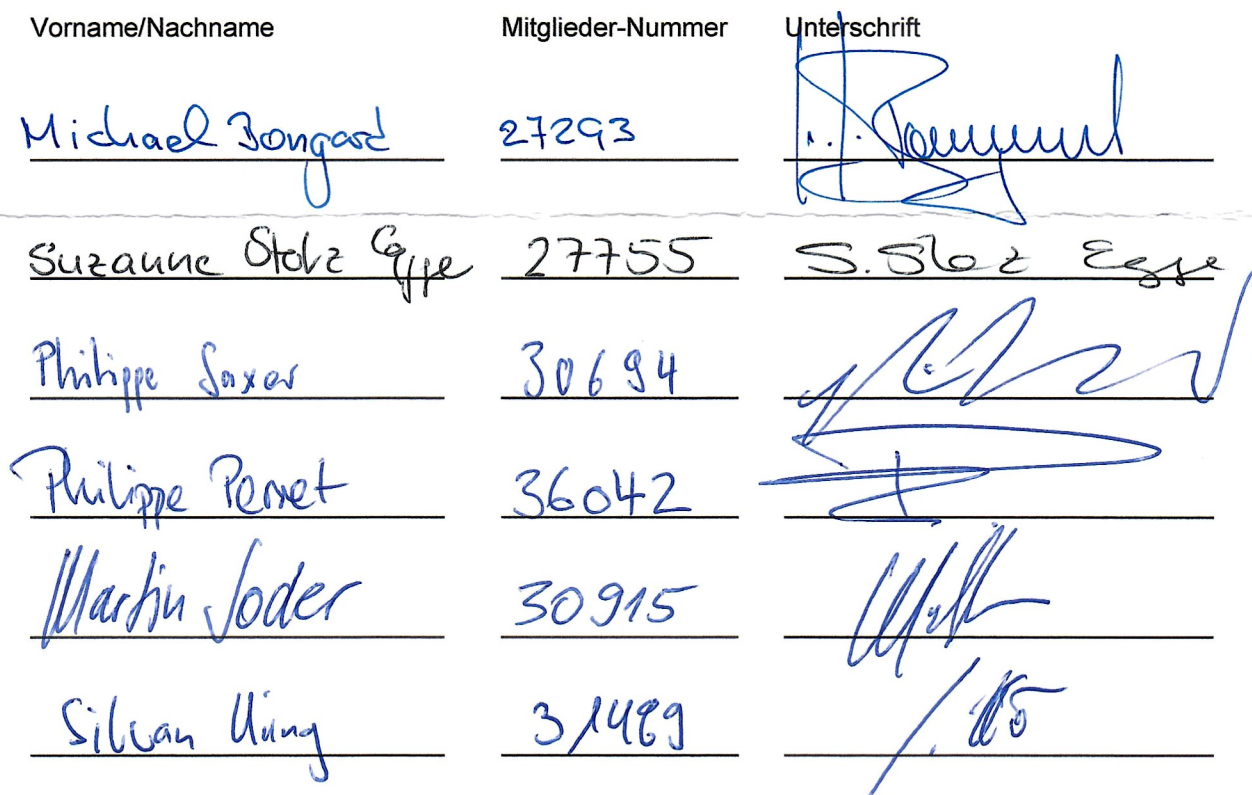 Vorname/Nachname Mitglieder-Nummer Unterschrift
Michael Bongard 27293
Suzanne Stolz Egge 27755 S. Stolz Egge
Philippe Saxer 30694
Philippe Perret 36042
Martin Soder 30915
Silvan 31489